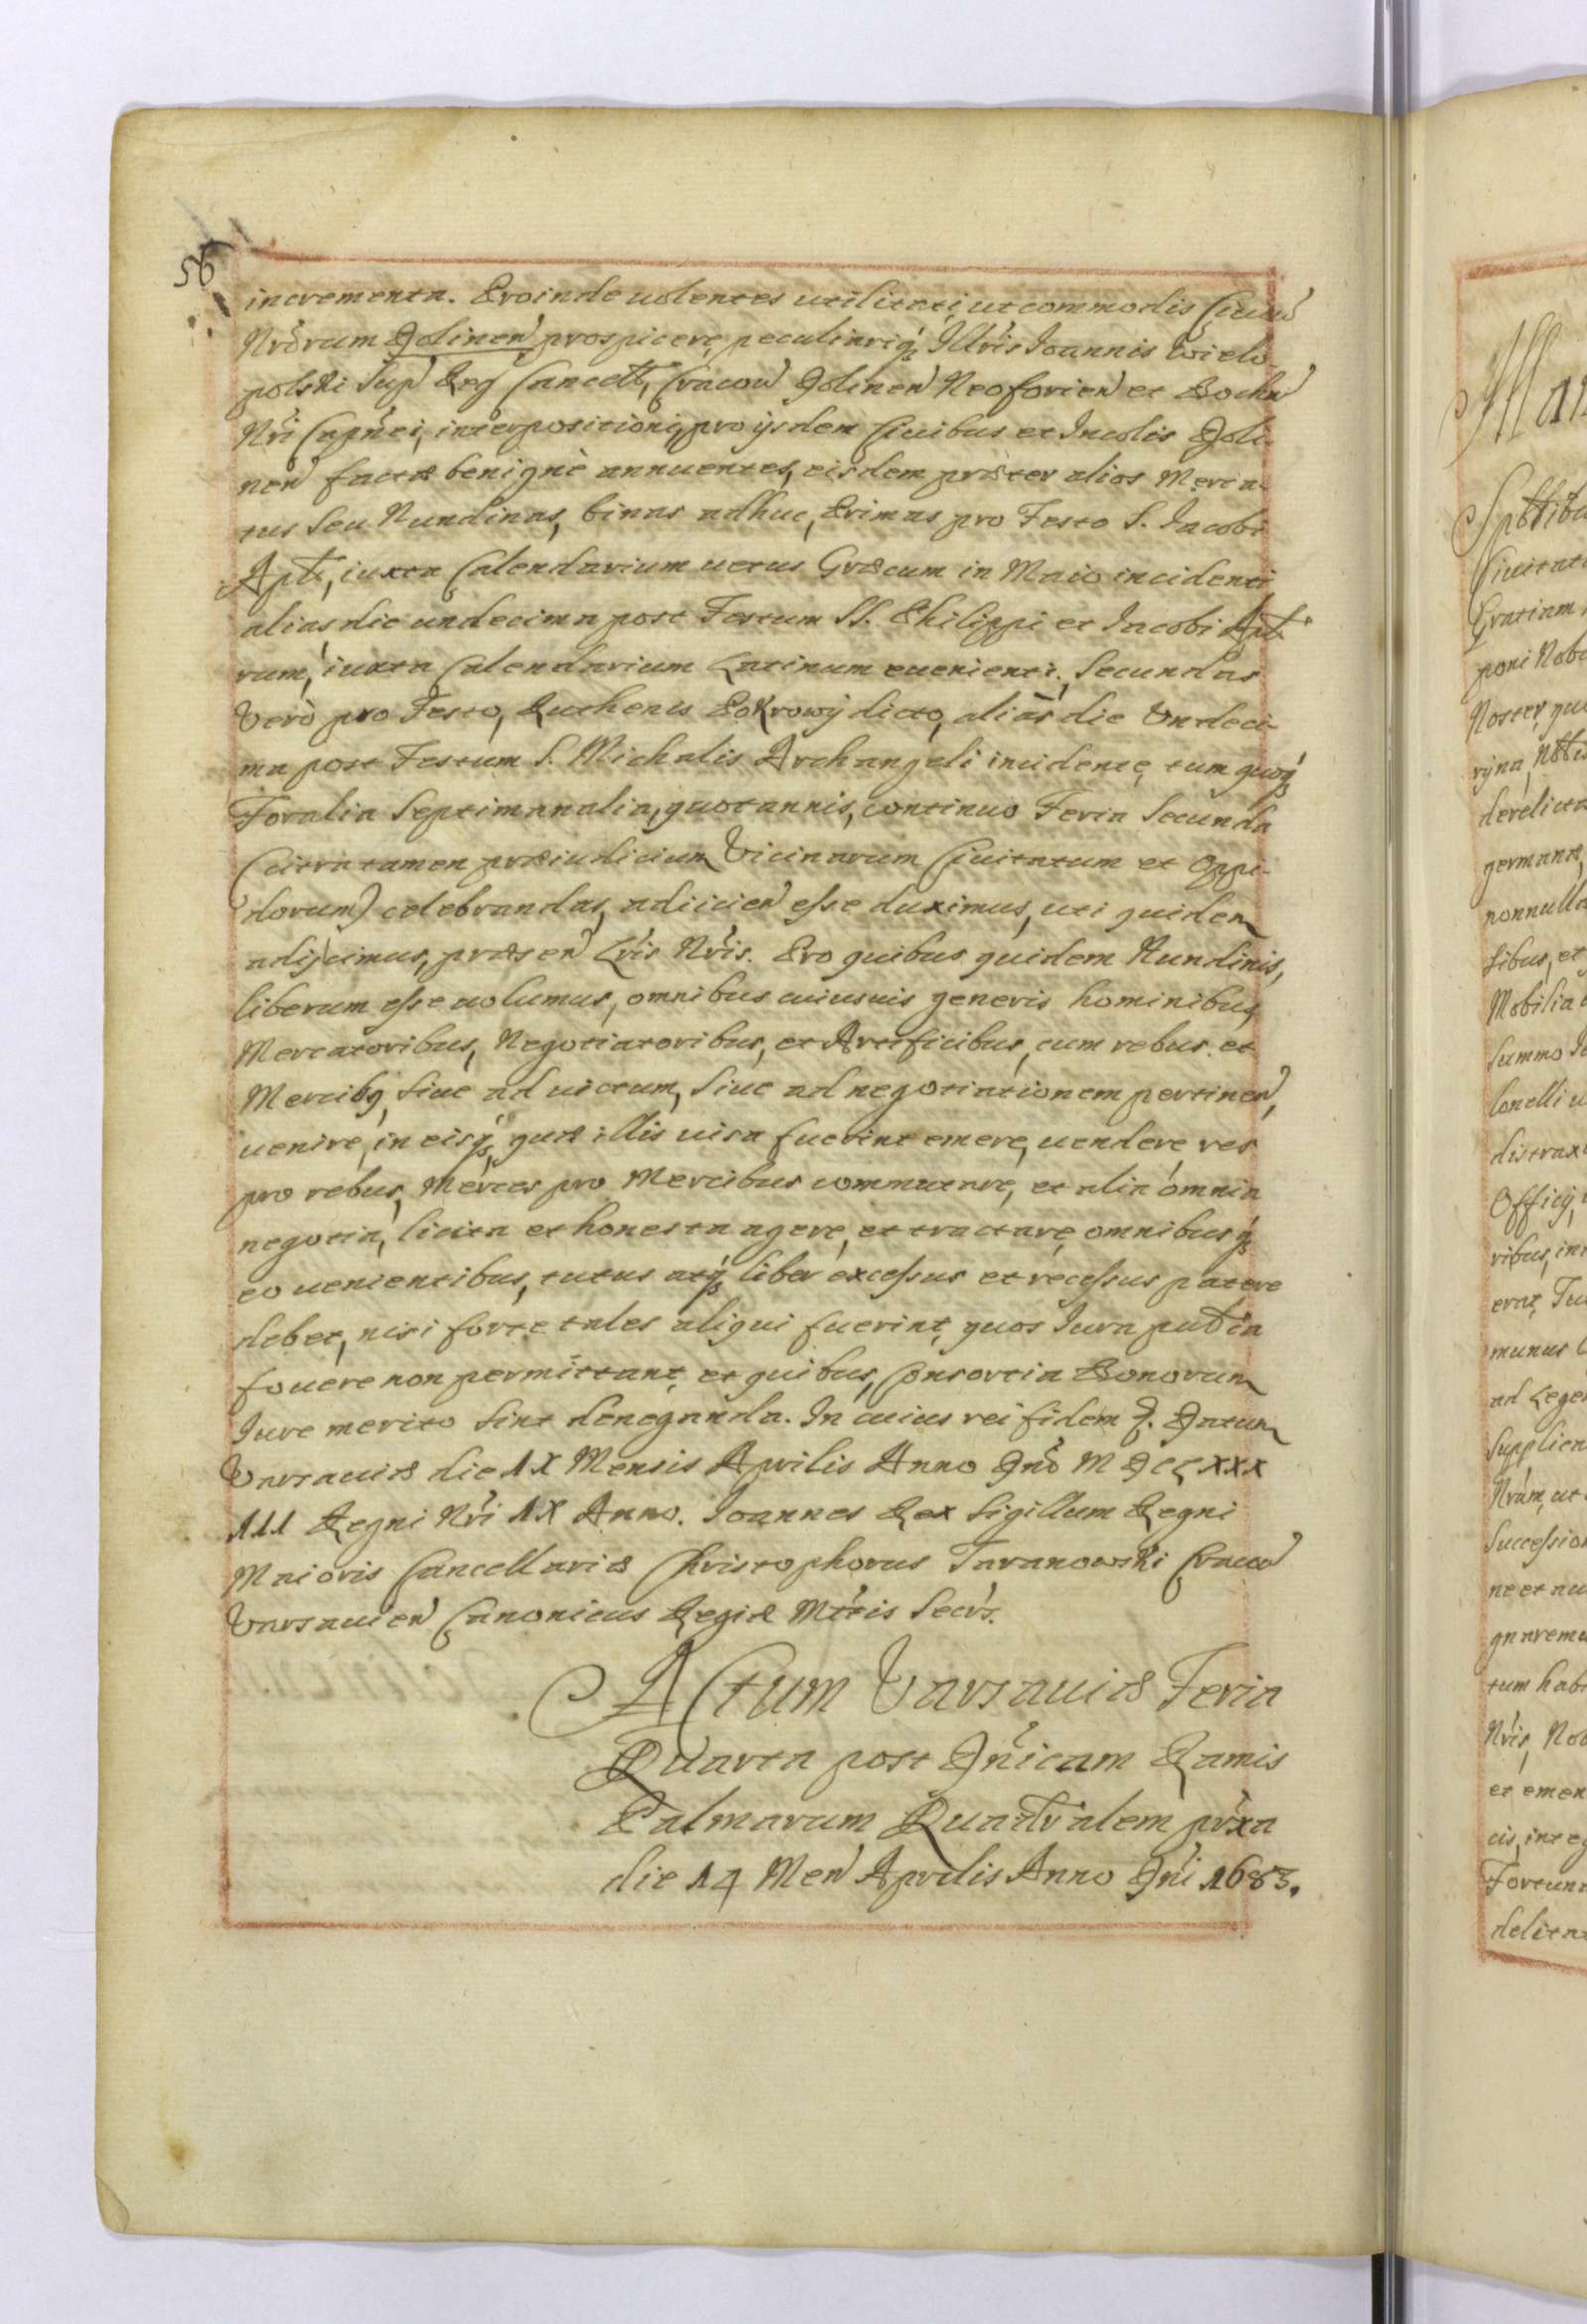 56
incrementa. Proinde uolentes utilitati, ut commodis Ciuiũ
Nrõrum Dolinen̄ prospicere, peculiariq; Illris Ioannis Wielo-
polski Sup̄ Reg Cancell, Cracou̅ Dolinen̄ Neoforien̄ et Bochn̄
Nri Capnei, interpositioni, pro ijsdem Ciuibus et Incolis Doli-
nen̄ factæ benignè annuentes, eisdem præter alios Merca-
tus seu Nundinas, binas adhuc, Primas pro Festo S. Iacobi
Apłi, iuxta Calendarium uetus Græcum in Maio incidenti
alias die undecima post Festum SS. Philippi et Iacobi Apło-
rum, iuxta Calendarium Latinum euenienti. Secundas
Verò pro Festo, Ruthenis Pokrowÿ dicto, aliàs die Undeci-
ma post Festum S. Michalis Archangeli incidente, tum quoq;
Foralia Septimanalia, quotannis, continuo Feria Secunda
(citra tamen præiudicium Vicinarum Ciuitatum et Oppi-
dorum) celebrandas, adiicien̄ esse duximus, uti quidem
adijcimus, præsen̄ Lris Nris. Pro quibus quidem Nundinis,
liberum esse uolumus, omnibus cuiusuis generis hominibus,
Mercatoribus, Negotiatoribus, et Artificibus, cum rebus et
Mercibq, siue ad uictum, siue ad negotiationem pertinen̄,
uenire, in eisq; quæ illis uisa fuerint emere, uendere res
pro rebus, Merces pro Mercibus commutare, et alia omnia
negotia, licita et honesta agere, et tractare, omnibusq;
eo uenientibus, tutus atq; liber excessus et recessus patere
debet, nisi forte tales aliqui fuerint, quos Iura publica
fouere non permittant, et quibus, Consortia Bonorum
Iure merito sint deneganda. In cuius rei fidem &. Datum
Varsauiæ die IX Mensis Aprilis Anno Dnĩ M DCLXXX
III Regni Nri IX Anno. Ioannes Rex Sigillum Regni
Maioris Cancellariæ Christophorus Taranowski Cracou̅
Varsauien̄ Canonicus Regiæ Mttis Secrs.
Actum Varsauiæ Feria
Quarta post Dnicam Ramis
Palmarum Quadralem prxa
die 14 Men̄ Aprilis Anno Dni 1683.